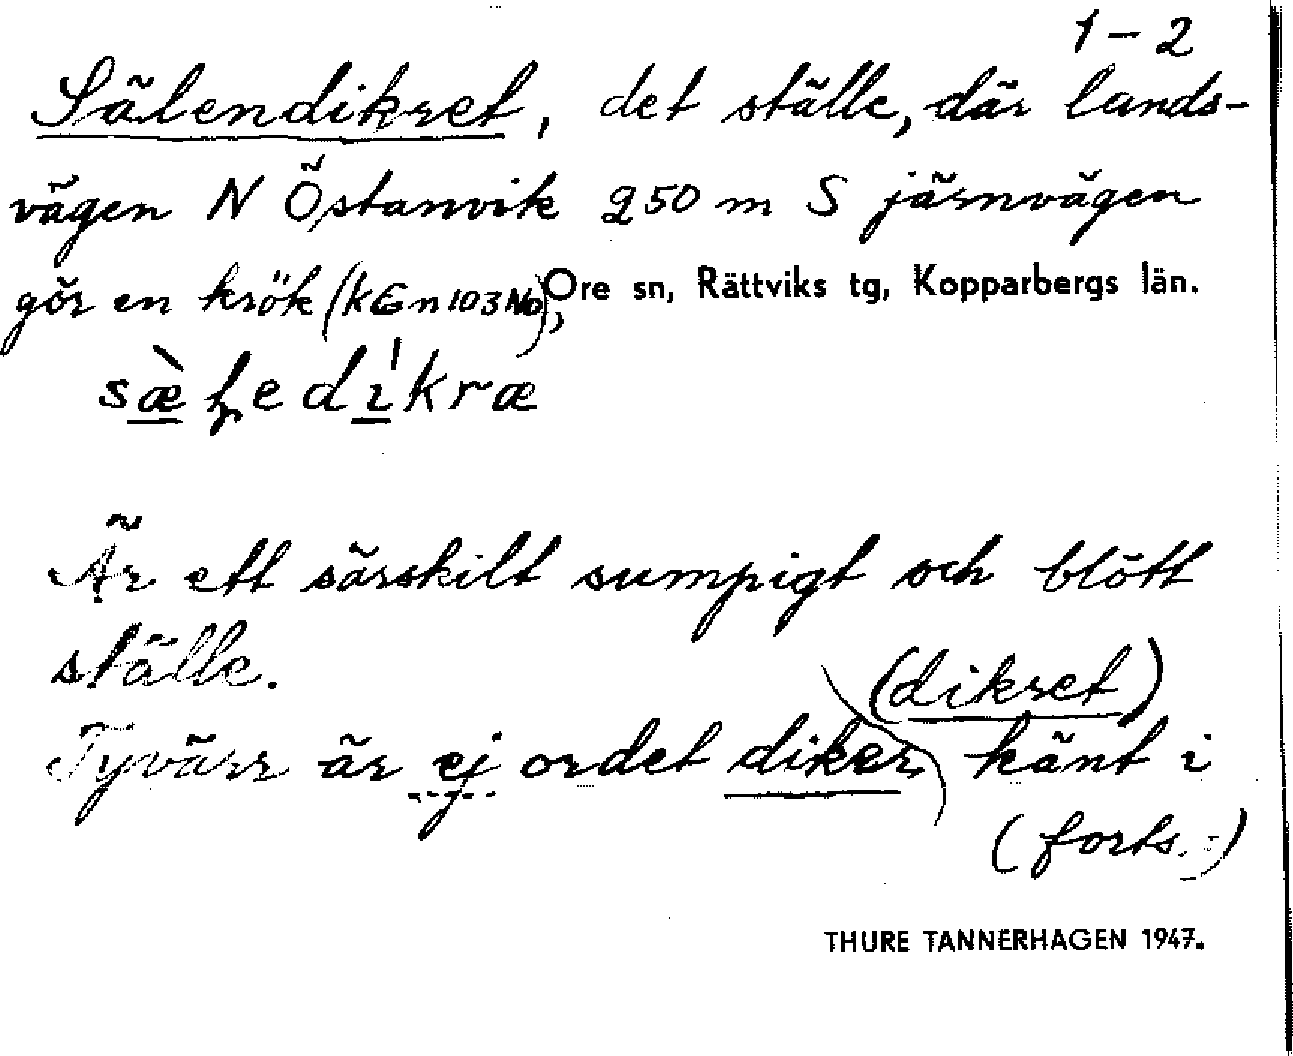 1-2
Sälendikret, det ställe, där lands-
vägen N Östanvik 250 m S järnvägen
gör en krök (KGn103No), Ore sn, Rättviks tg, Kopparbergs län.
Är ett särskilt sumpigt och blött
ställe.
(dikret)
Tyvärr är ej ordet diker känt i
(forts.)
THURE TANNERHAGEN 1947.